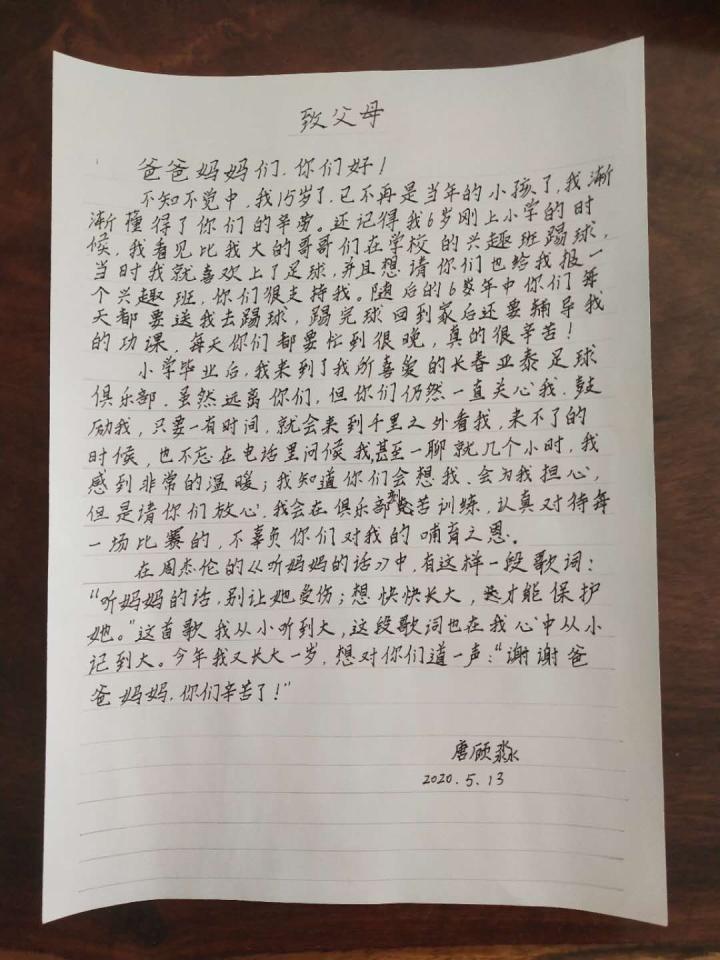 致父母
爸爸妈妈们，你们好！
不知不觉中，我15岁了，已不再是当年的小孩了，我渐
渐懂得了你们的辛劳。还记得我6岁刚上小学的时
候，我看见比我大的哥哥们在学校的兴趣班踢球，
当时我就喜欢上了足球，并且想请你们也给我报一
个兴趣班，你们很支持我。随后的6年中你们每
天都要送我去踢球，踢完球回到家后还要辅导我
的功课，每天你们都要忙到很晚，真的很辛苦！
小学毕业后，我来到了我所喜爱的长春亚泰足球
俱乐部。虽然远离你们，但你们仍然一直关心我、鼓
励我，只要一有时间，就会来到千里之外看我，来不了的
时候，也不忘在电话里问候我，甚至一聊就几个小时，我
感到非常的温暖；我知道你们会想我、会为我担心，
但是请你们放心，我会在俱乐部刻苦训练，认真对待每
一场比赛的，不辜负你们对我的哺育之恩。
在周杰伦的《听妈妈的话》中，有这样一段歌词：
“听妈妈的话，别让她受伤；想快快长大，才能保护
她。”这首歌我从小听到大，这段歌词也在我心中从小
记到大。今年我又长大一岁，想对你们道一声：“谢谢爸
爸妈妈，你们辛苦了！”
唐顾淼
2020.5.13